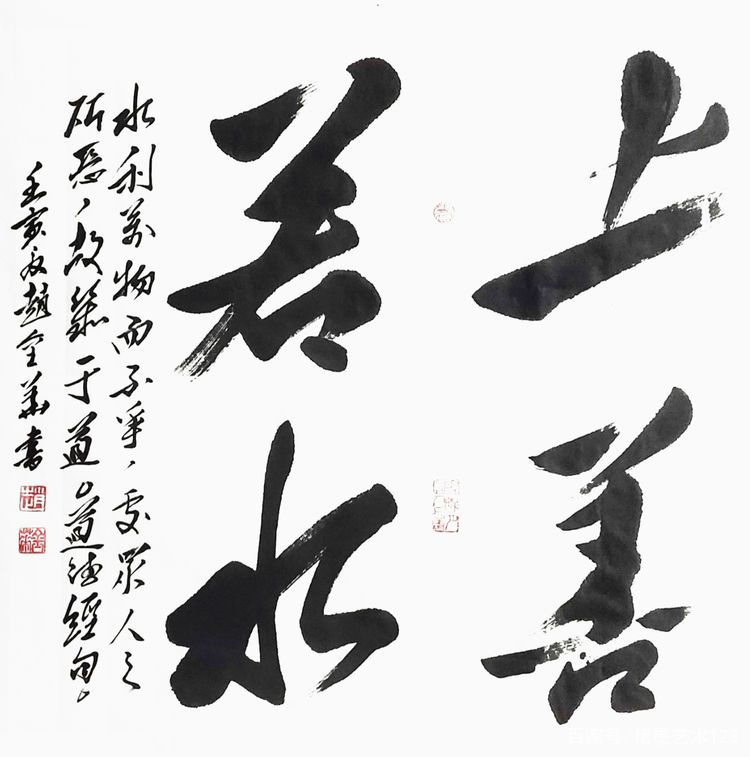 上善
若水
水利萬物而不爭、處眾人之
所惡、故幾于道〇道德經句
壬寅夏趙華書
百家号/艺术123